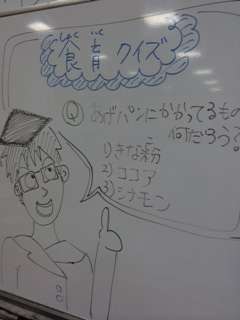 しょくいく
食育クイズ
Q あげパンにかかってるもの
何だろう?
1) きな粉
2) ココア
3) シナモン